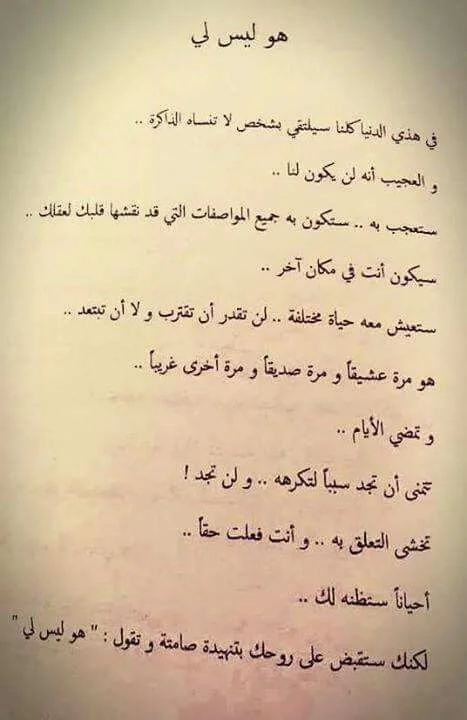 هو ليس لي
في هذي الدنيا كلنا سيلتقي بشخص لا تنساه الذاكرة ..
و العجيب أنه لن يكون لنا ..
ستعجب به .. ستكون به جميع المواصفات التي قد نقشها قلبك لعقلك ..
سيكون أنت في مكان آخر ..
ستعيش معه حياة مختلفة .. لن تقدر أن تقترب و لا أن تبتعد ..
هو مرة عشيقاً و مرة صديقاً و مرة أخرى غريباً ..
و تمضي الأيام ..
تتمنى أن تجد سبباً لتكرهه .. و لن تجد !
تخشى التعلق به .. و أنت فعلت حقاً ..
أحياناً ستظنه لك ..
لكنك ستقبض على روحك بتنهيدة صامتة و تقول : " هو ليس لي "